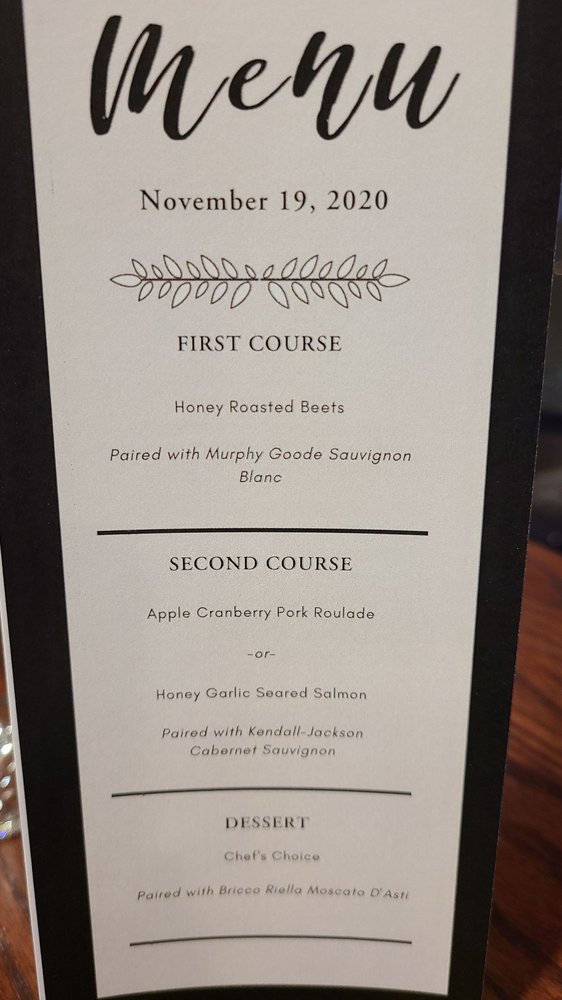 Menu
November 19, 2020
FIRST COURSE
Honey Roasted Beets
Paired with Murphy Goode Sauvignon
Blanc
SECOND COURSE
Apple Cranberry Pork Roulade
-or-
Honey Garlic Seared Salmon
Paired with Kendall-Jackson
Cabernet Sauvignon
DESSERT
Chef's Choice
Paired with Bricco Riella Moscato D'Asti